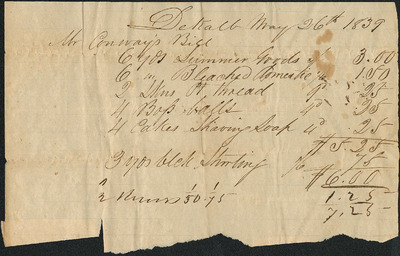 DeKalb May 26th 1839
Mr Conways Bill
6 yds Summer Goods 3.00
6 " Bleached Domestic 1.50
2 thread pd 25
4 Balls pd 25
4 Cakes Shaving Soap pd .25
$5.25
3 yds blck 75
$6.00
2 50 .75 1.25
7,25